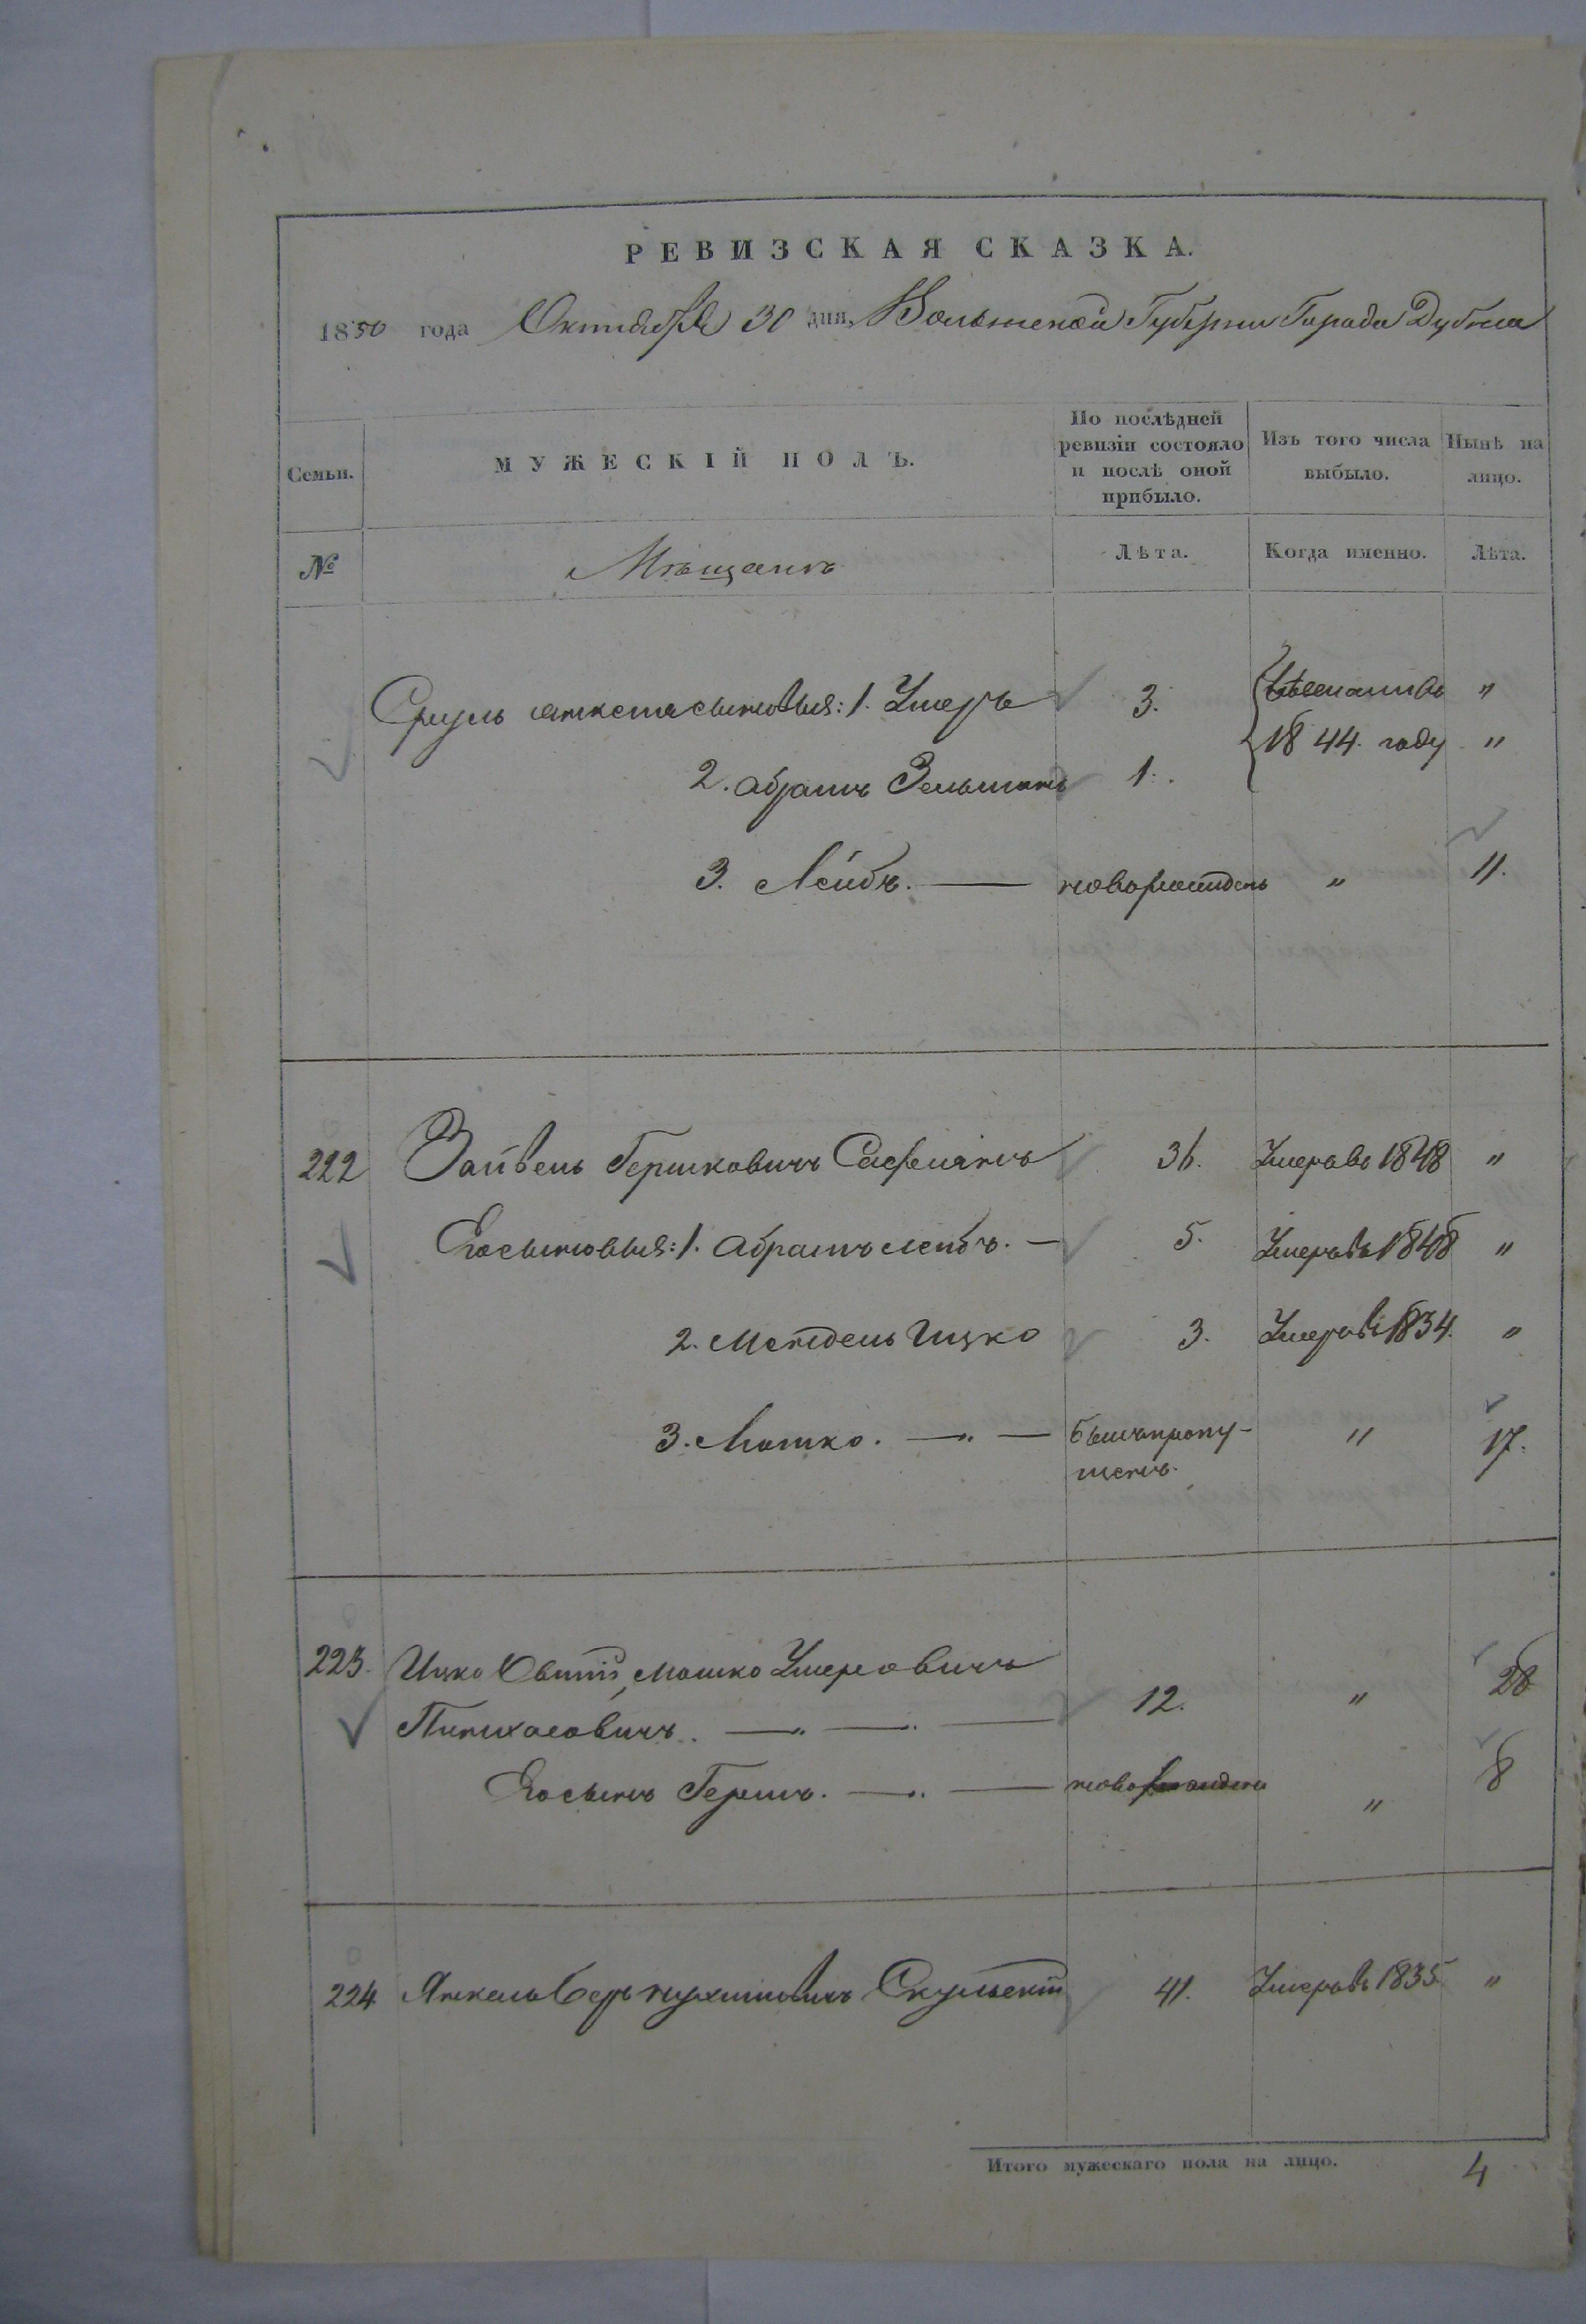 РЕВИЗСКАЯ СКАЗКА.
1850 года Октября 30 дня, Волынской Губернии Города Дубна
Семьи. МУЖЕСКІЙ ПОЛЪ. По послѣдней ревизіи состояло и послѣ оной прибыло. Изъ того числа выбыло. Нынѣ на лицо.
№ Мѣщанъ Лѣта. Когда именно. Лѣта.
Сруль сыновья: 1. Умеръ 3. "
1844. году "
2. абрамъ Зельманъ 1.
3. Лейбъ. — новорожденъ " 11.
222 Зайвель Гершковичъ 36. Умеръ въ 1848 "
Его сыновья: 1. Абрамъ лейбъ. — 5. Умеръ въ 1848 "
2. Мендель Ицко 3. Умеръ въ 1834. "
3. Мошко. — — былъ пропу- " 17.
щенъ.
223. Ицко Мошко Умеровичъ
Пинхасовичъ. — — — 12. " 28
Его сынъ Гершъ. — — новорожденъ " 8
224 Янкель Беръ Скульскій 41. Умеръ въ 1835 "
Итого мужескаго пола на лицо. 4